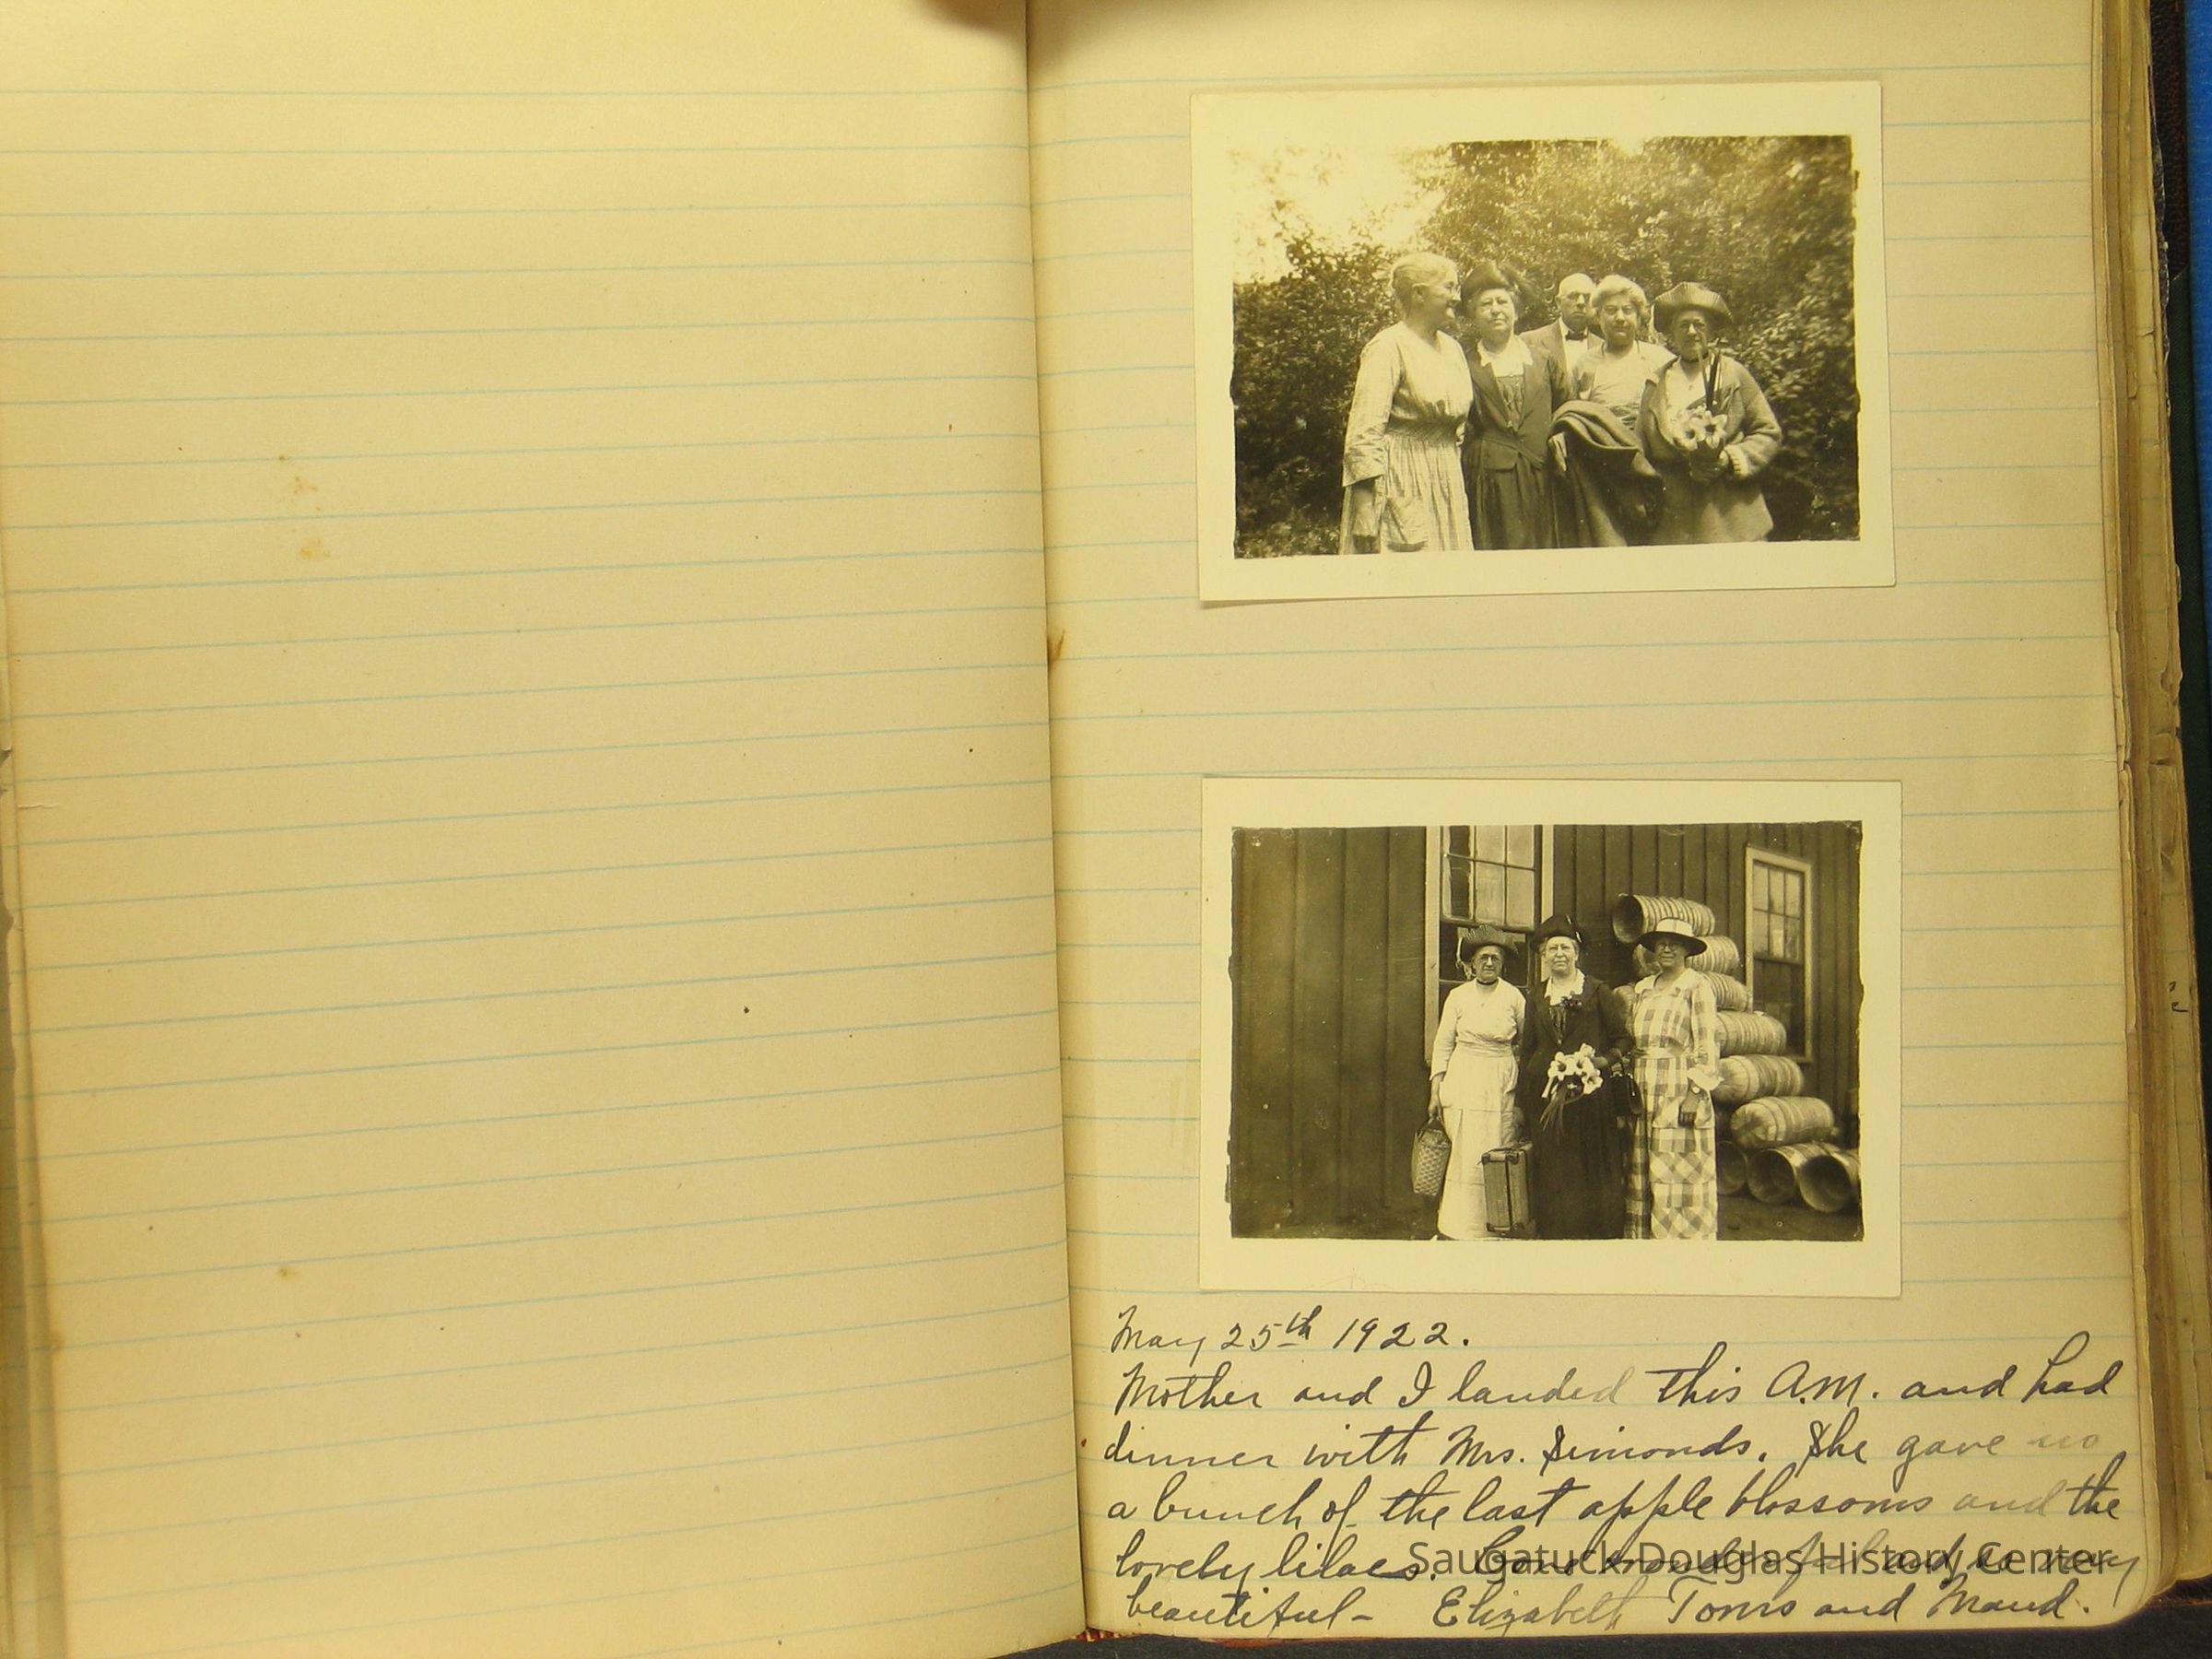 May 25th 1922.
Mother and I landed this A.M. and had
dinner with Mrs. Simonds. She gave us
a bunch of the last apple blossoms and the
lovely lilacs. and so very
Saugatuck Douglas History Center
beautiful - Elizabeth Toms and Maud.